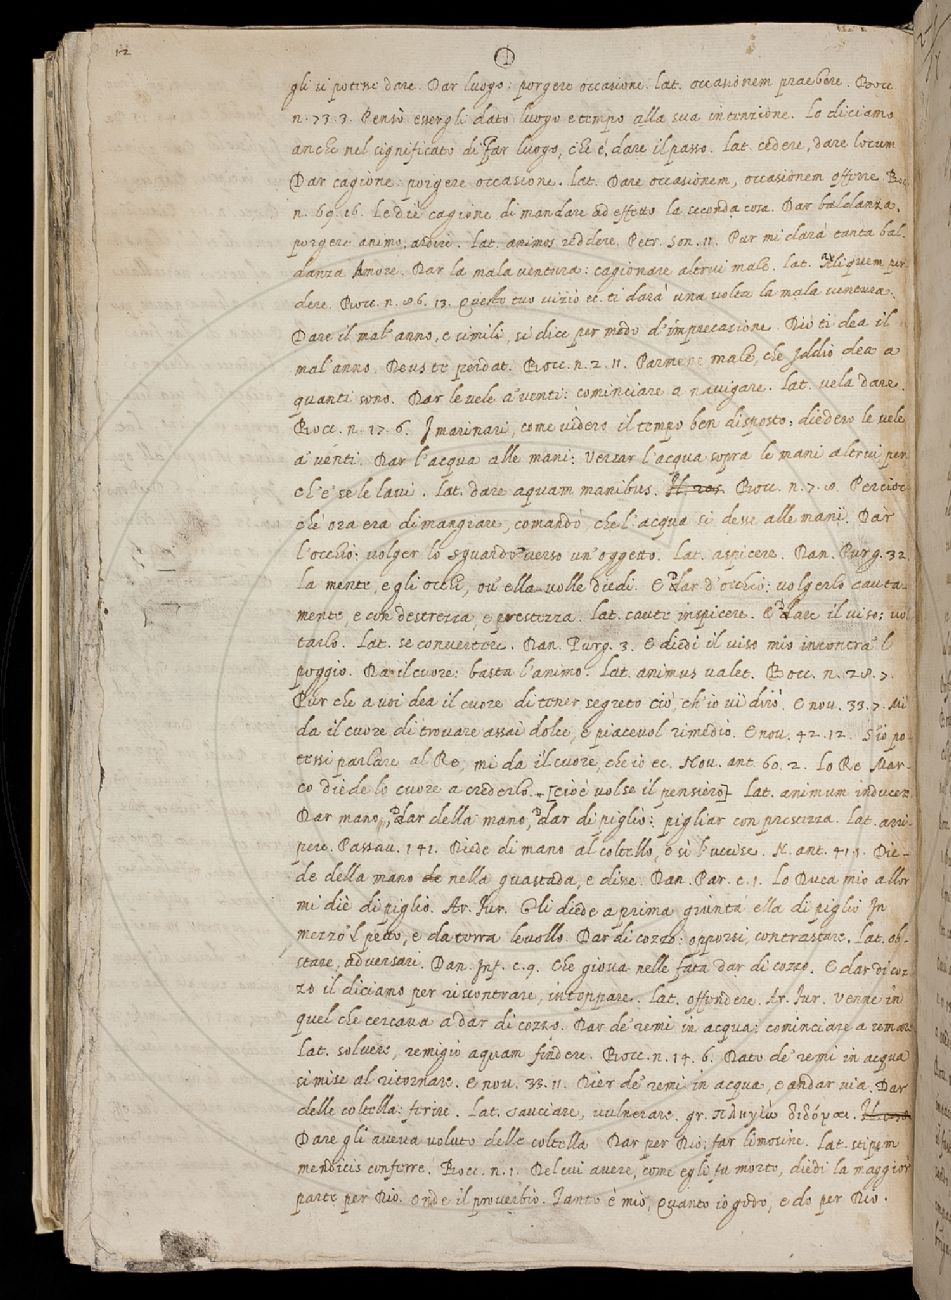 12
gli si potesse dare. Dar luogo: porgere occasione. Lat. occasionem praebere. Bocc.
n. 73. 3. Pensò essergli dato luogo e tempo alla sua intenzione. Lo diciamo
anche nel significato di far luogo, ch'è, dare il passo. Lat. cedere, dare locum
Dar cagione: porgere occasione. Lat. Dare occasionem, occasionem offerre. Boc.
n. 69. 16. Le diè cagione di mandare ad effetto la seconda cosa. Dar baldanza.
porgere animo, ardire. Lat. animos reddere. Petr. Son. 11. Pur mi darà tanta bal-
danza Amore. Dar la mala ventura: cagionare altrui male. Lat. Aliquem per-
dere. Bocc. n. 86. 13. Questo tuo vizio ec. ti darà una volta la mala ventura.
Dare il mal'anno, e simili, si dice per modo d'imprecazione. Dio ti dea il
mal'anno. Deus te perdat. Bocc. n. 2. 11. Parmene male, che Iddio dea a
quanti sono. Dar le vele a' venti: cominciare a navigare. Lat. vela dare.
Bocc. n. 17. 6. I marinari, come videro il tempo ben disposto, diedero le vele
a' venti. Dar l'acqua alle mani: Versar l'acqua sopra le mani altrui per
ch'e' se le lavi. Lat. dare aquam manibus. Bocc. n. 7. 8. Percioc
chè ora era di mangiare, comandò che l'acqua si desse alle mani. Dar
l'occhio: volger lo sguardo verso un'oggetto. Lat. aspicere. Dan. Purg. 32.
La mente, e gli occhi, ov'ella volle diedi. E dar d'occhio: volgerlo cauta-
mente, e con destrezza, e prestezza. Lat. caute inspicere. E dare il viso: vol
tarlo. Lat. se convertere. Dan. Purg. 3. E diedi il viso mio incontra 'l
poggio. Dar il cuore: basta l'animo. Lat. animus valet. Bocc. n. 28. 7.
Pur che a voi dea il cuore di tener segreto ciò, ch'io vi dirò. E nov. 33. 7. Mi
da il cuore di trovare assai dolce, e piacevol rimedio. E nov. 42. 12. S'io po-
tessi parlare al Re, mi da il cuore, che io ec. Nov. ant. 60. 2. Lo Re Mar-
co diede lo cuore a crederlo. [cioè volse il pensiero] Lat. animum inducere
Dar mano, dar della mano, dar di piglio: pigliar con prestezza. Lat. arri-
pere. Passav. 141. Diede di mano al coltello, e sì l'uccise. N. ant. 41. 1. Die-
de della mano de nella guastada, e disse. Dan. Par. c. 1. Lo Duca mio allor
mi diè di piglio. Ar. Fur. Gli diede a prima giunta ella di piglio In
mezzo 'l petto, e da terra levollo. Dar di cozzo: opporsi, contrastare. Lat. ob-
stare, adversari. Dan. Inf. c. 9. Che giova nelle fata dar di cozzo. E dar di coz-
zo il diciamo per riscontrare, intoppare. Lat. offendere. Ar. Fur. Venne in
quel che cercava a dar di cozzo. Dar de' remi in acqua: cominciare a remare
Lat. solvere, remigio aquam findere. Bocc. n. 14. 6. Dato de' remi in acqua
si mise al ritornare. E nov. 33. 11. Dier de' remi in acqua, e andar via. Dar
delle coltella: ferire. Lat. sauciare, vulnerare. gr.
Dare gli aveva voluto delle coltella Dar per Dio: far limosine. Lat. stipem
mendicis conferre. Bocc. n. 1. Del cui avere, come egli fu morto, diedi la maggior
parte per Dio. Onde il proverbio. Tanto è mio, quanto io godo, e do per Dio.